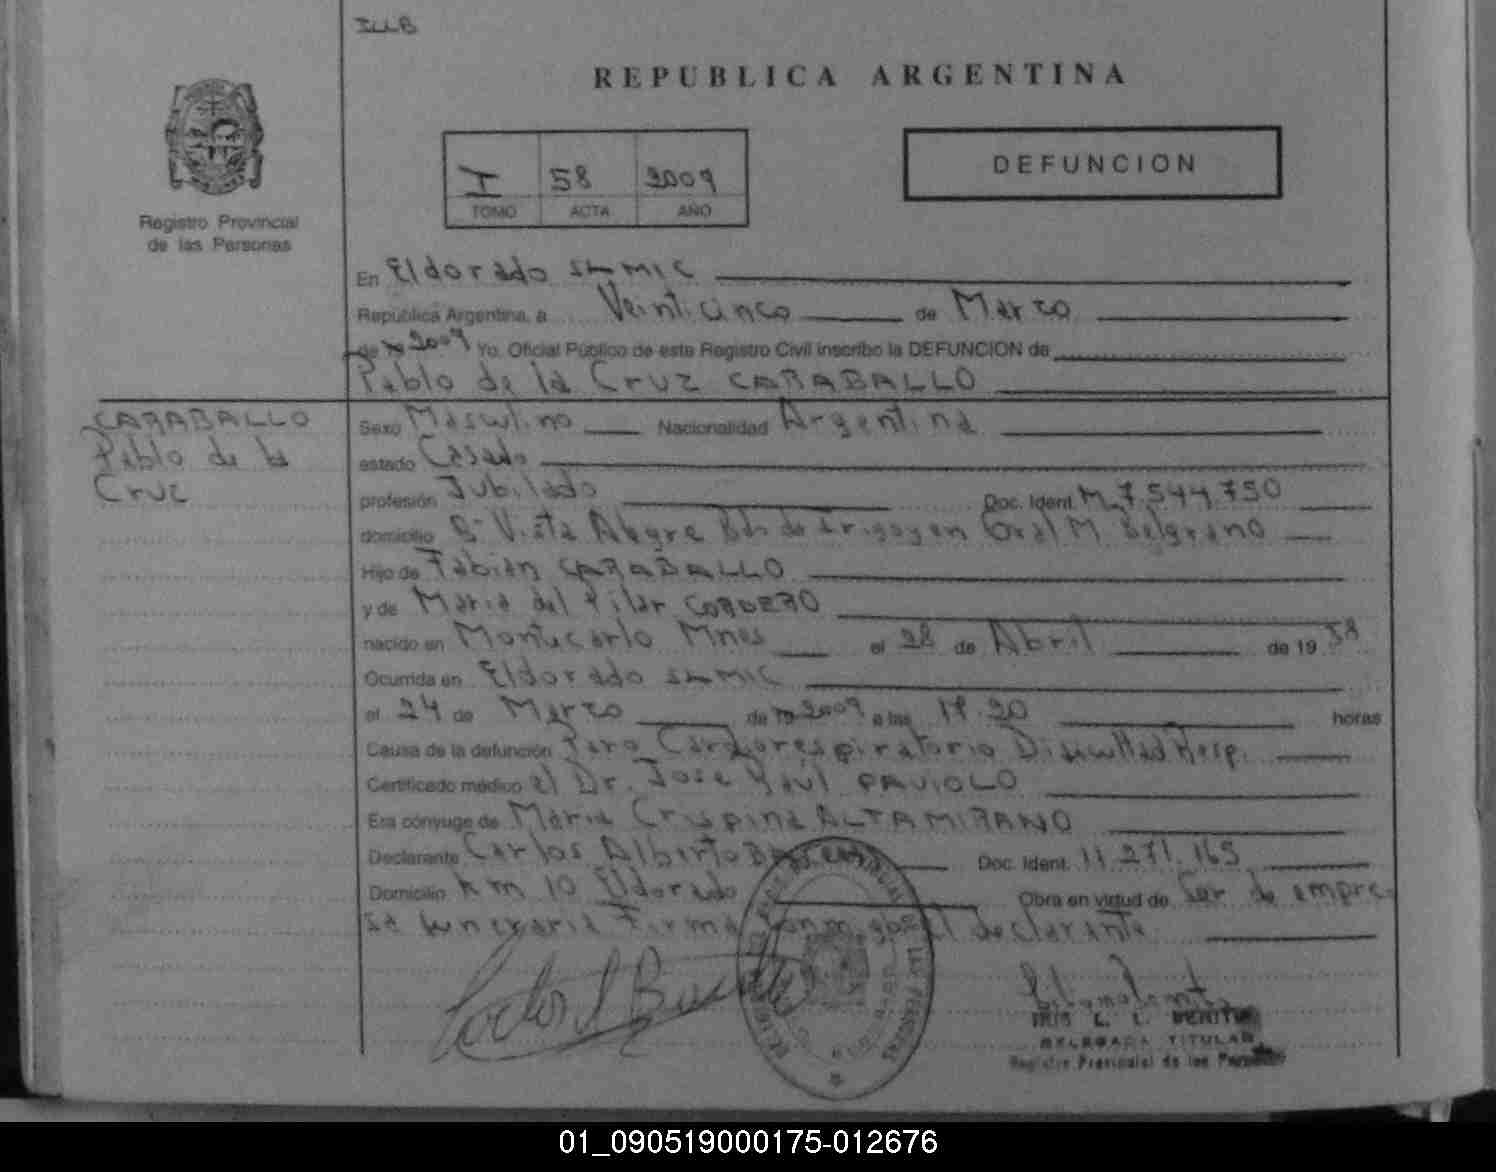 ILLB
REPUBLICA ARGENTINA
I 58 2009
TOMO ACTA AÑO
DEFUNCION
Registro Provincial
de las Personas
En Eldorado
República Argentina, a Veinticinco de Marzo
de 19 2009 Yo, Oficial Público de este Registro Civil inscribo la DEFUNCION de
Pablo de la Cruz CARABALLO
CARABALLO
Pablo de la
Cruz
Sexo Masculino Nacionalidad Argentina
estado Casado
profesión Jubilado Doc. Ident. M 7.544.750
domicilio Bº Vista Alegre Bdo de Irigoyen Gral M Belgrano
Hijo de Fabián CARABALLO
y de Maria del Pilar CORDERO
nacido en Montecarlo Mnes el 28 de Abril de 19
Ocurrida en Eldorado
el 24 de Marzo de 19 2009 a las 17.20 horas
Causa de la defunción Paro Cardiorespiratorio Dificultad Resp.
Certificado médico el Dr. Jose Raul FAVIOLO
Era cónyuge de Maria Crispina ALTAMIRANO
Declarante Carlos Alberto Doc. Ident. 11.271.165
Domicilio Km 10 Eldorado Obra en virtud de Ser de empre-
sa funeraria Firma conmigo el declarante
IRIS L. L. BENITEZ
DELEGADA TITULAR
Registro Provincial de las Personas
01_090519000175-012676